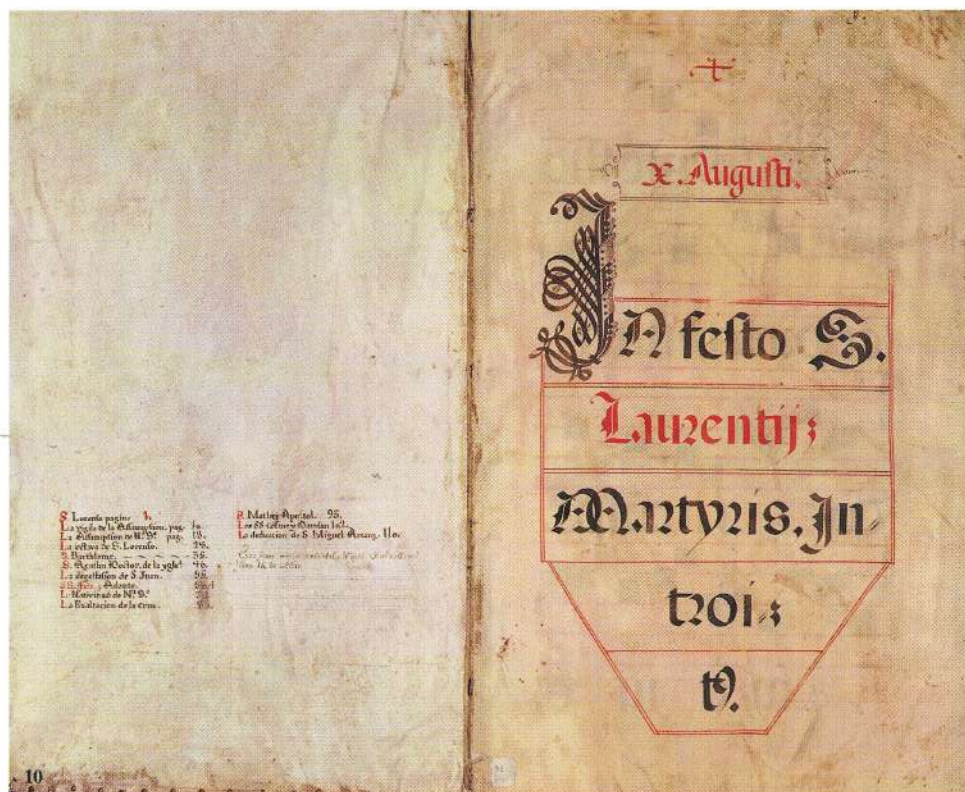 S. Lorenso pagina 1.
La vigilia de la Assumpsion. pag.
La Assumpsion de N.ª S.ª pag. 15.
La octava de S. Lorenso. 28.
S. Bartholome. 38.
S. Agustin Doctor. de la ygla. 46.
La degollasion de S. Juan. 55.
SS. Felix y Adauto.
La Natividad de N.ª S.ª
La Exaltacion de la cruz.
S. Matheo Apostol. 95.
Los SS. Cosme y Damian 102.
La dedicasion de S. Miguel Arcang. 110.
10
+
X. Augusti.
IN festo S.
Laurentij;
Martyris. In-
troi-;
t9.